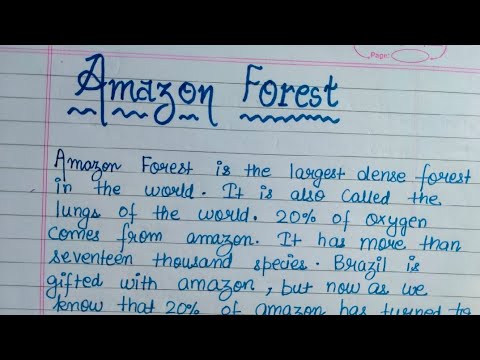 Page:
Amazon Forest
Amazon Forest is the largest dense forest
in the world. It is also called the
lungs of the world. 20% of oxygen
comes from amazon. It has more than
seventeen thousand species. Brazil is
gifted with amazon, but now as we
know that 20% of amazon has turned to